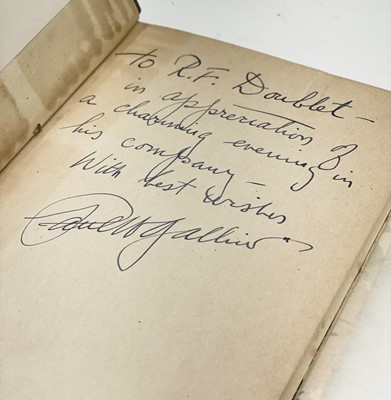 To R.F. Doublet –
in appreciation of
a charming evening in
his company –
With best wishes
Paul W Gallico